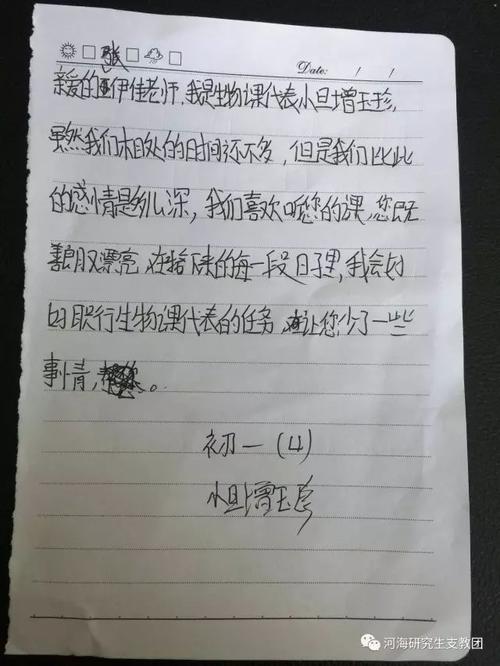 Date: / /
张
亲爱的伊佳老师,我是生物课代表小旦增玉珍,
虽然我们相处的时间还不多,但是我们彼此
的感情是多么深,我们喜欢听您的课,您既
又漂亮,在接下来的每一段日子里,我会好
好职行生物课代表的任务,让您少了一些
事情,。
初一(4)
小旦增玉珍
河海研究生支教团